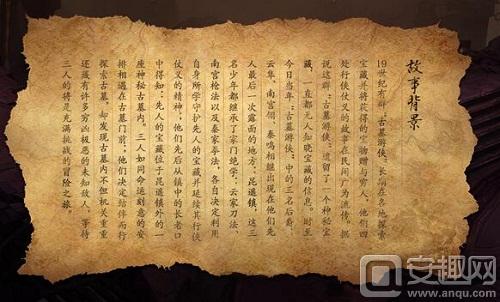 故事背景
19世纪有群“古墓游侠”长期在各地探索
宝藏并将获得的宝物赠与穷人。他们四
处行侠仗义的故事在民间广为流传。据
说这群“古墓游侠”遗留了一个神秘宝
藏，一直都无人知晓宝藏的信息。时至
今日当年“古墓游侠”中的三名后裔：
云隼、南宫翎、秦鸣相继出现在他们先
人最后一次露面的地方：昆遁镇，这三
名少年都继承了家门绝学：云家刀法、
南宫枪法以及秦家拳法。各自决定利用
自身所学守护先人的宝藏并延续其行侠
仗义的精神，他们先后从镇中的长老口
中得知：先人的宝藏位于昆遁镇外的一
座神秘古墓内。三人如同命运刻意的安
排相遇在古墓门前，他们决定结伴而行
探索古墓，却发现古墓内不但机关重重
还藏有许多穷凶极恶的未知敌人，等待
三人的将是充满挑战的冒险之旅。
安趣网
www.anqu.com